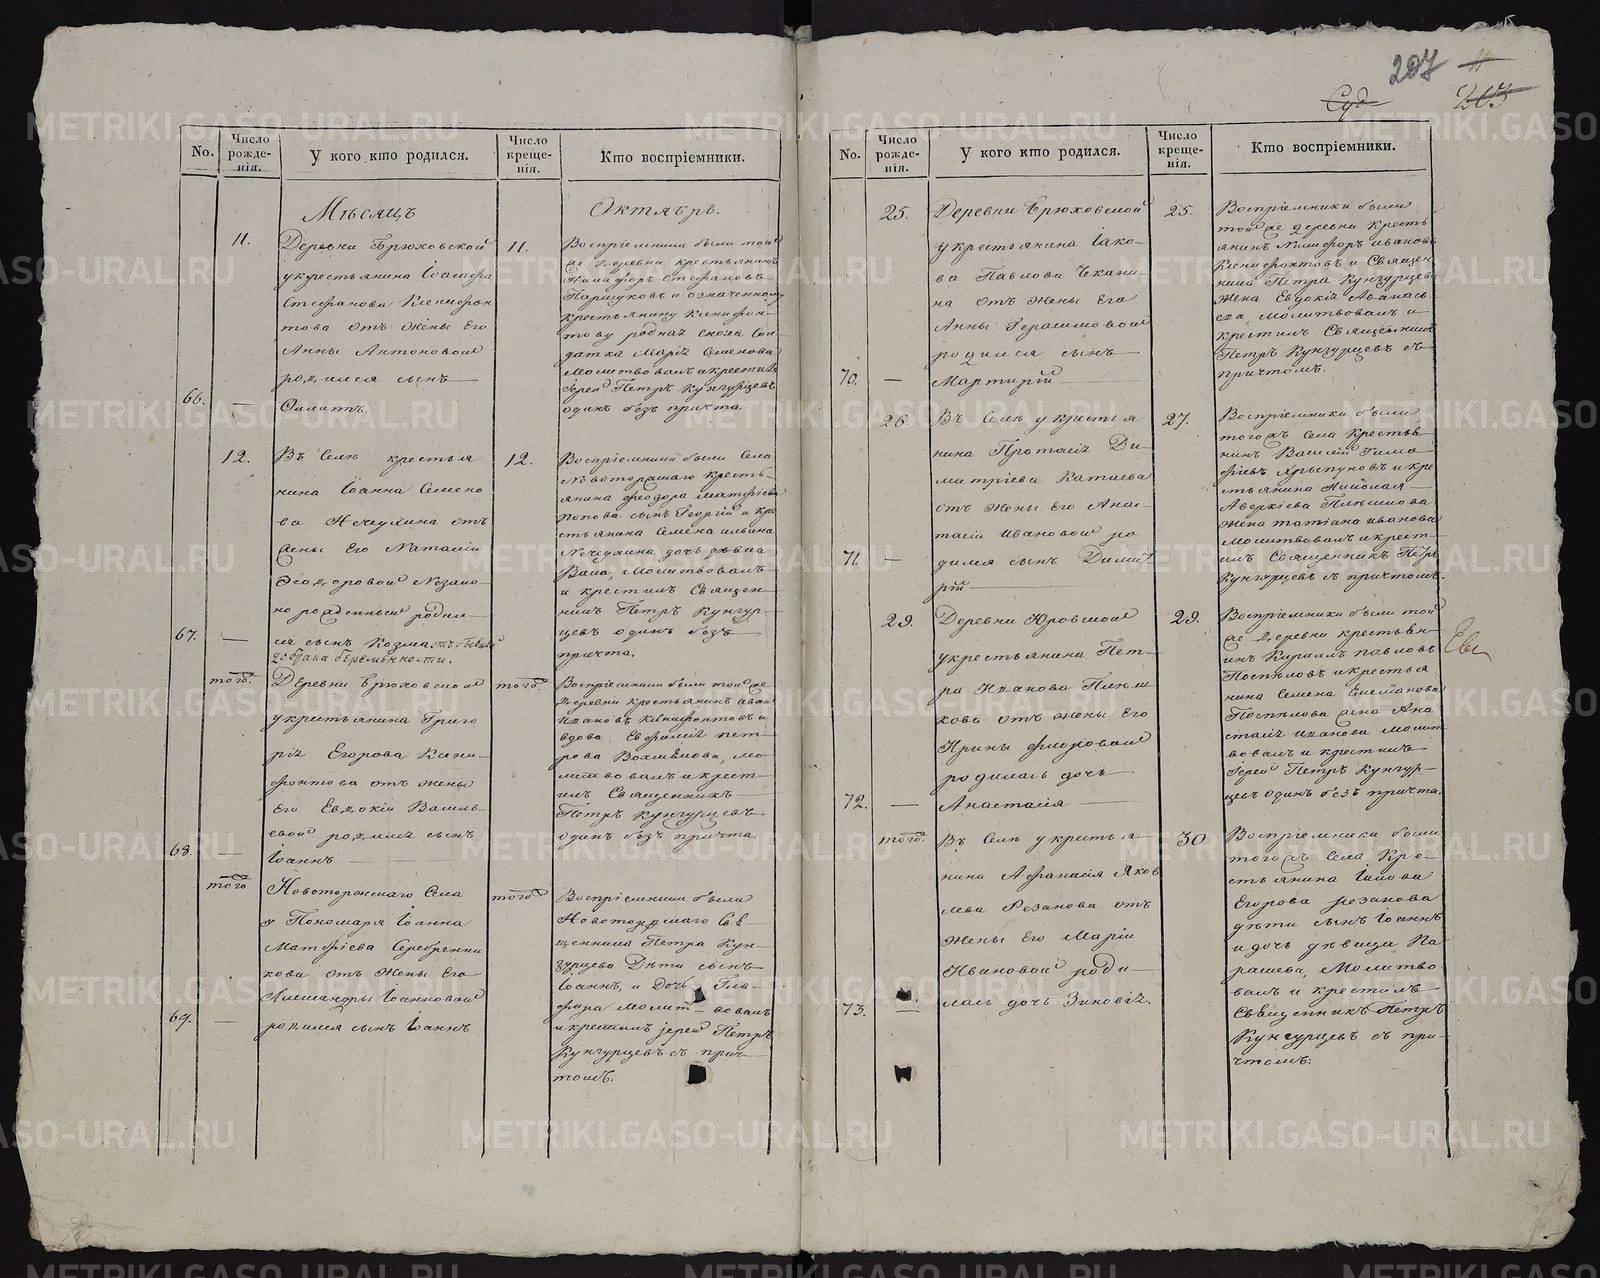 207
Суд
203
No.
Число рожденія.
У кого кто родился.
Число крещенія.
Кто воспріемники.
Мѣсяцъ
Октябрь.
11.
Деревни Брюховской
у крестьянина
Стефанова Ксенофон
това отъ жены его
Анны Антоновой
родился сынъ
66.
—
Филиппъ.
11.
Воспріемники были той
же деревни крестьянинъ
Никифоръ Стефановъ
и означенному
крестьянину Ксенофон-
тову родная сноха Сол-
датка Марія Семенова
Молитвовалъ и крестилъ
Іерей Петръ Кунгурцевъ
одинъ безъ причта.
12.
Въ Селѣ крестья
нина Іоанна Семено
ва Нечеухина отъ
жены его Наталіи
Ѳеодоровой
родил
67.
—
ся сынъ Козма
беременности.
12.
Воспріемники были Села
Новоторжскаго кресть-
янина Феодора Матфіева
Попова сынъ Георгій и кре
стьянина Семена
Нечеухина дочь дѣвица
Молитвовалъ
и крестилъ Священ-
никъ Петръ Кунгур-
цевъ одинъ безъ
причта.
того
Деревни Брюховской
у крестьянина Григо
рія Егорова Ксено-
фонтова отъ жены
его Евдокіи Василь-
евой родился сынъ
68.
—
Іоаннъ
того
Воспріемники были той же
деревни крестьянинъ Иван
Ивановъ Ксенофонтовъ и
вдова Евфимія Пет-
рова мо-
литвовалъ и крест-
илъ Священникъ
Петръ Кунгурцевъ
одинъ безъ причта.
того
Новоторжскаго Села
у Пономаря Іоанна
Матфіева Серебренни
кова отъ жены его
Александры Іоанновой
69.
—
родился сынъ Іоаннъ
того
Воспріемники были
Новоторжскаго Свя
щенника Петра Кун-
гурцева Дѣти сынъ
Іоаннъ, и Дочь Гла-
фира молитвовалъ
и крестилъ іерей Петръ
Кунгурцевъ съ прич-
томъ.
No.
Число рожденія.
У кого кто родился.
Число крещенія.
Кто воспріемники.
25.
Деревни Брюховской
у крестьянина Іако-
ва Павлова Чекани-
на отъ жены его
Анны Герасимовой
родился сынъ
70.
—
Мартирій
25.
Воспріемники были
той же деревни кресть
янинъ Никифоръ Ивановъ
Ксенофонтовъ и Священ
ника Петра Кунгурцева
жена Евдокія Афанась
ева молитвовалъ и
крестилъ Священникъ
Петръ Кунгурцевъ съ
причтомъ.
26.
Въ Селѣ у крестья
нина Протасія Ди-
митріева Катаева
отъ жены его Анас-
тасіи Ивановой ро
71.
—
дился сынъ Димит
рій
27.
Воспріемники были
тогожъ Села крестья-
нинъ Василій Тимо
фіевъ Хрыпуновъ и кре
стьянина Николая
Аверкіева Плѣшкова
жена Татіана Иванова
Молитвовалъ и крест-
илъ Священникъ Петръ
Кунгурцевъ съ причтомъ.
29.
Деревни Юровской
у крестьянина Пет-
ра Иванова Плѣш
кова отъ жены его
Ирины Флоровой
родилась дочь
72.
—
Анастасія
29.
Воспріемники были той
же деревни крестьян-
инъ Кириллъ Павловъ
Поспѣловъ и крестья
нина Семена
Поспѣлова жена Ана
стасія Иванова молит
вовалъ и крестилъ
Іерей Петръ Кунгур-
цевъ одинъ безъ причта.
того
Въ Селѣ у крестья
нина Афанасія Яков
лева Рѣзанова отъ
жены его Маріи
Ивановой роди-
73.
—
лась дочь Зиновія.
30
Воспріемники были
тогожъ Села Кре-
стьянина
Егорова Рѣзанова
дѣти сынъ Іоаннъ
и дочь дѣвица Па
расева, Молитво
валъ и крестилъ
Священникъ Петръ
Кунгурцевъ съ при-
чтомъ.
METRIKI.GASO-URAL.RU